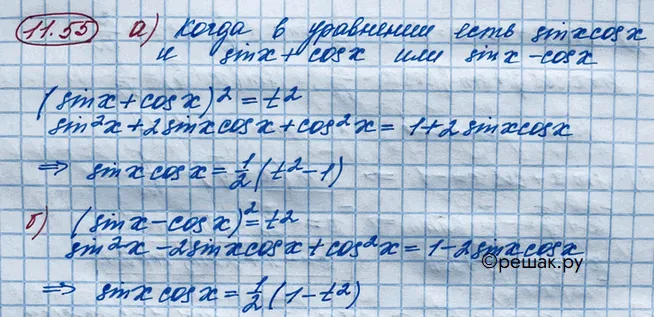 11.55 а) Когда в уравнении есть sinxcosx
и sinx + cosx или sinx - cosx
(sinx + cosx)² = t²
sin²x + 2sinxcosx + cos²x = 1 + 2sinxcosx
⇒ sinxcosx = 1/2 (t² - 1)
б) (sinx - cosx)² = t²
sin²x - 2sinxcosx + cos²x = 1 - 2sinxcosx
©решак.ру
⇒ sinxcosx = 1/2 (1 - t²)